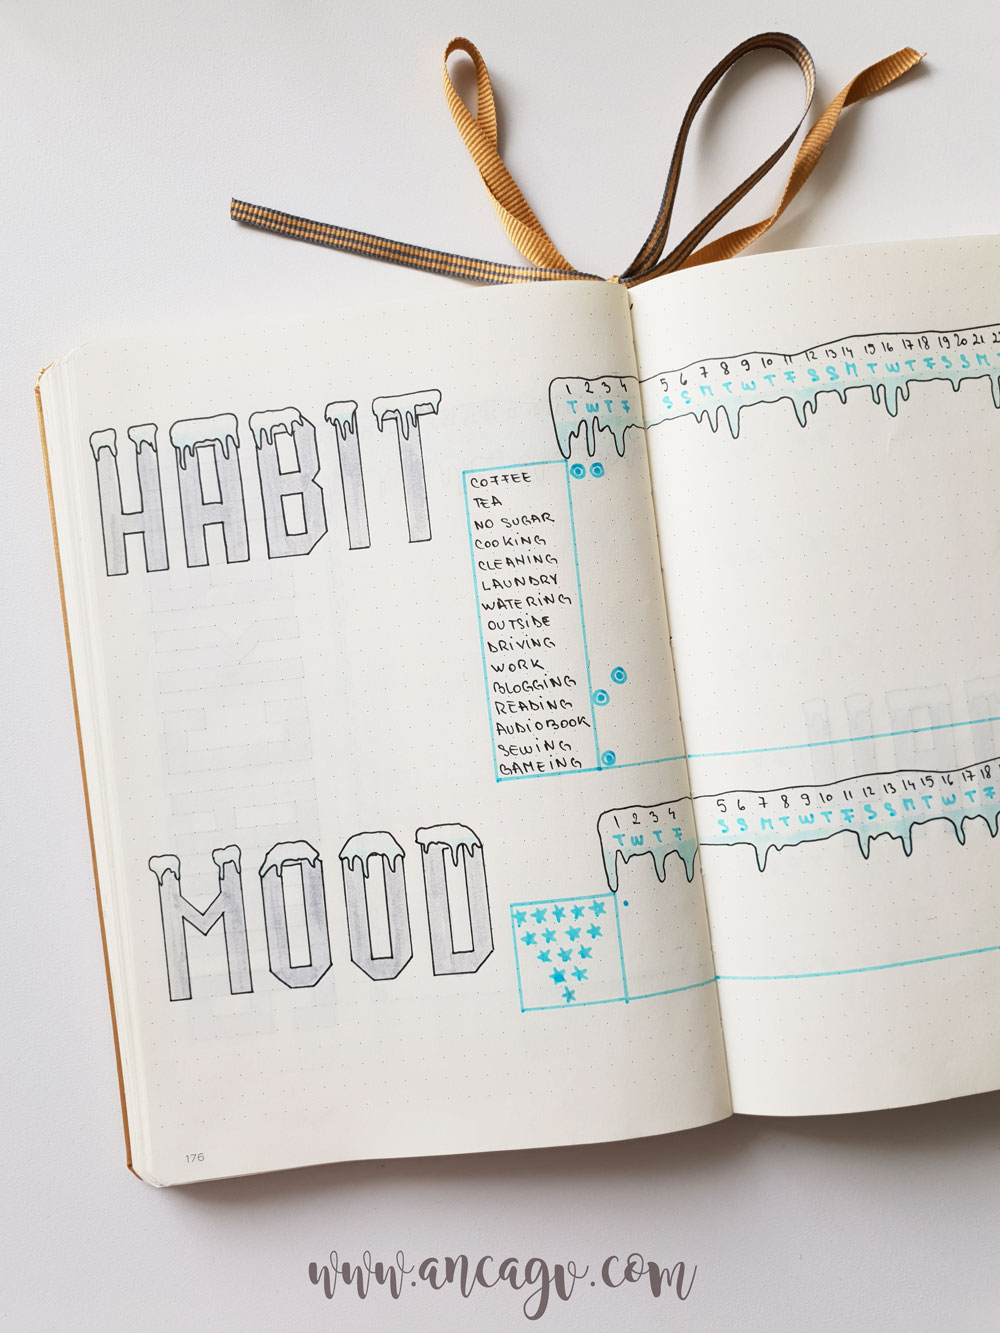 HABIT
1 2 3 4 5 6 7 8 9 10 11 12 13 14 15 16 17 18 19 20 21
T W T F S S M T W T F S S M T W T F S S M T
COFFEE
TEA
NO SUGAR
COOKING
CLEANING
LAUNDRY
WATERING
OUTSIDE
DRIVING
WORK
BLOGGING
READING
AUDIOBOOK
SEWING
GAMEING
MOOD
1 2 3 4 5 6 7 8 9 10 11 12 13 14 15 16 17 18
T W T F S S M T W T F S S M T W T F
176
www.ancagv.com